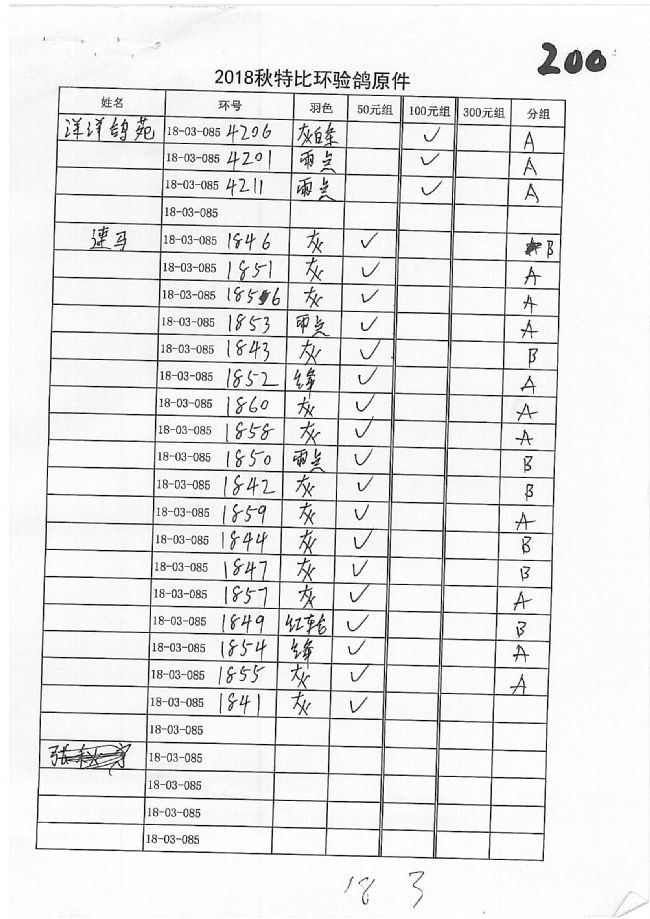 200
2018秋特比环验鸽原件
姓名 环号 羽色 50元组 100元组 300元组 分组
洋洋鸽苑 18-03-085 4206 灰白条 ✓ A
18-03-085 4201 雨点 ✓ A
18-03-085 4211 雨点 ✓ A
18-03-085
速马 18-03-085 1846 灰 ✓ B
18-03-085 1851 灰 ✓ A
18-03-085 1856 灰 ✓ A
18-03-085 1853 雨点 ✓ A
18-03-085 1843 灰 ✓ B
18-03-085 1852 绛 ✓ A
18-03-085 1860 灰 ✓ A
18-03-085 1858 灰 ✓ A
18-03-085 1850 雨点 ✓ B
18-03-085 1842 灰 ✓ B
18-03-085 1859 灰 ✓ A
18-03-085 1844 灰 ✓ B
18-03-085 1847 灰 ✓ B
18-03-085 1857 灰 ✓ A
18-03-085 1849 红轮 ✓ B
18-03-085 1854 绛 ✓ A
18-03-085 1855 灰 ✓ A
18-03-085 1841 灰 ✓
18-03-085
18-03-085
18-03-085
18-03-085
18-03-085
18 3